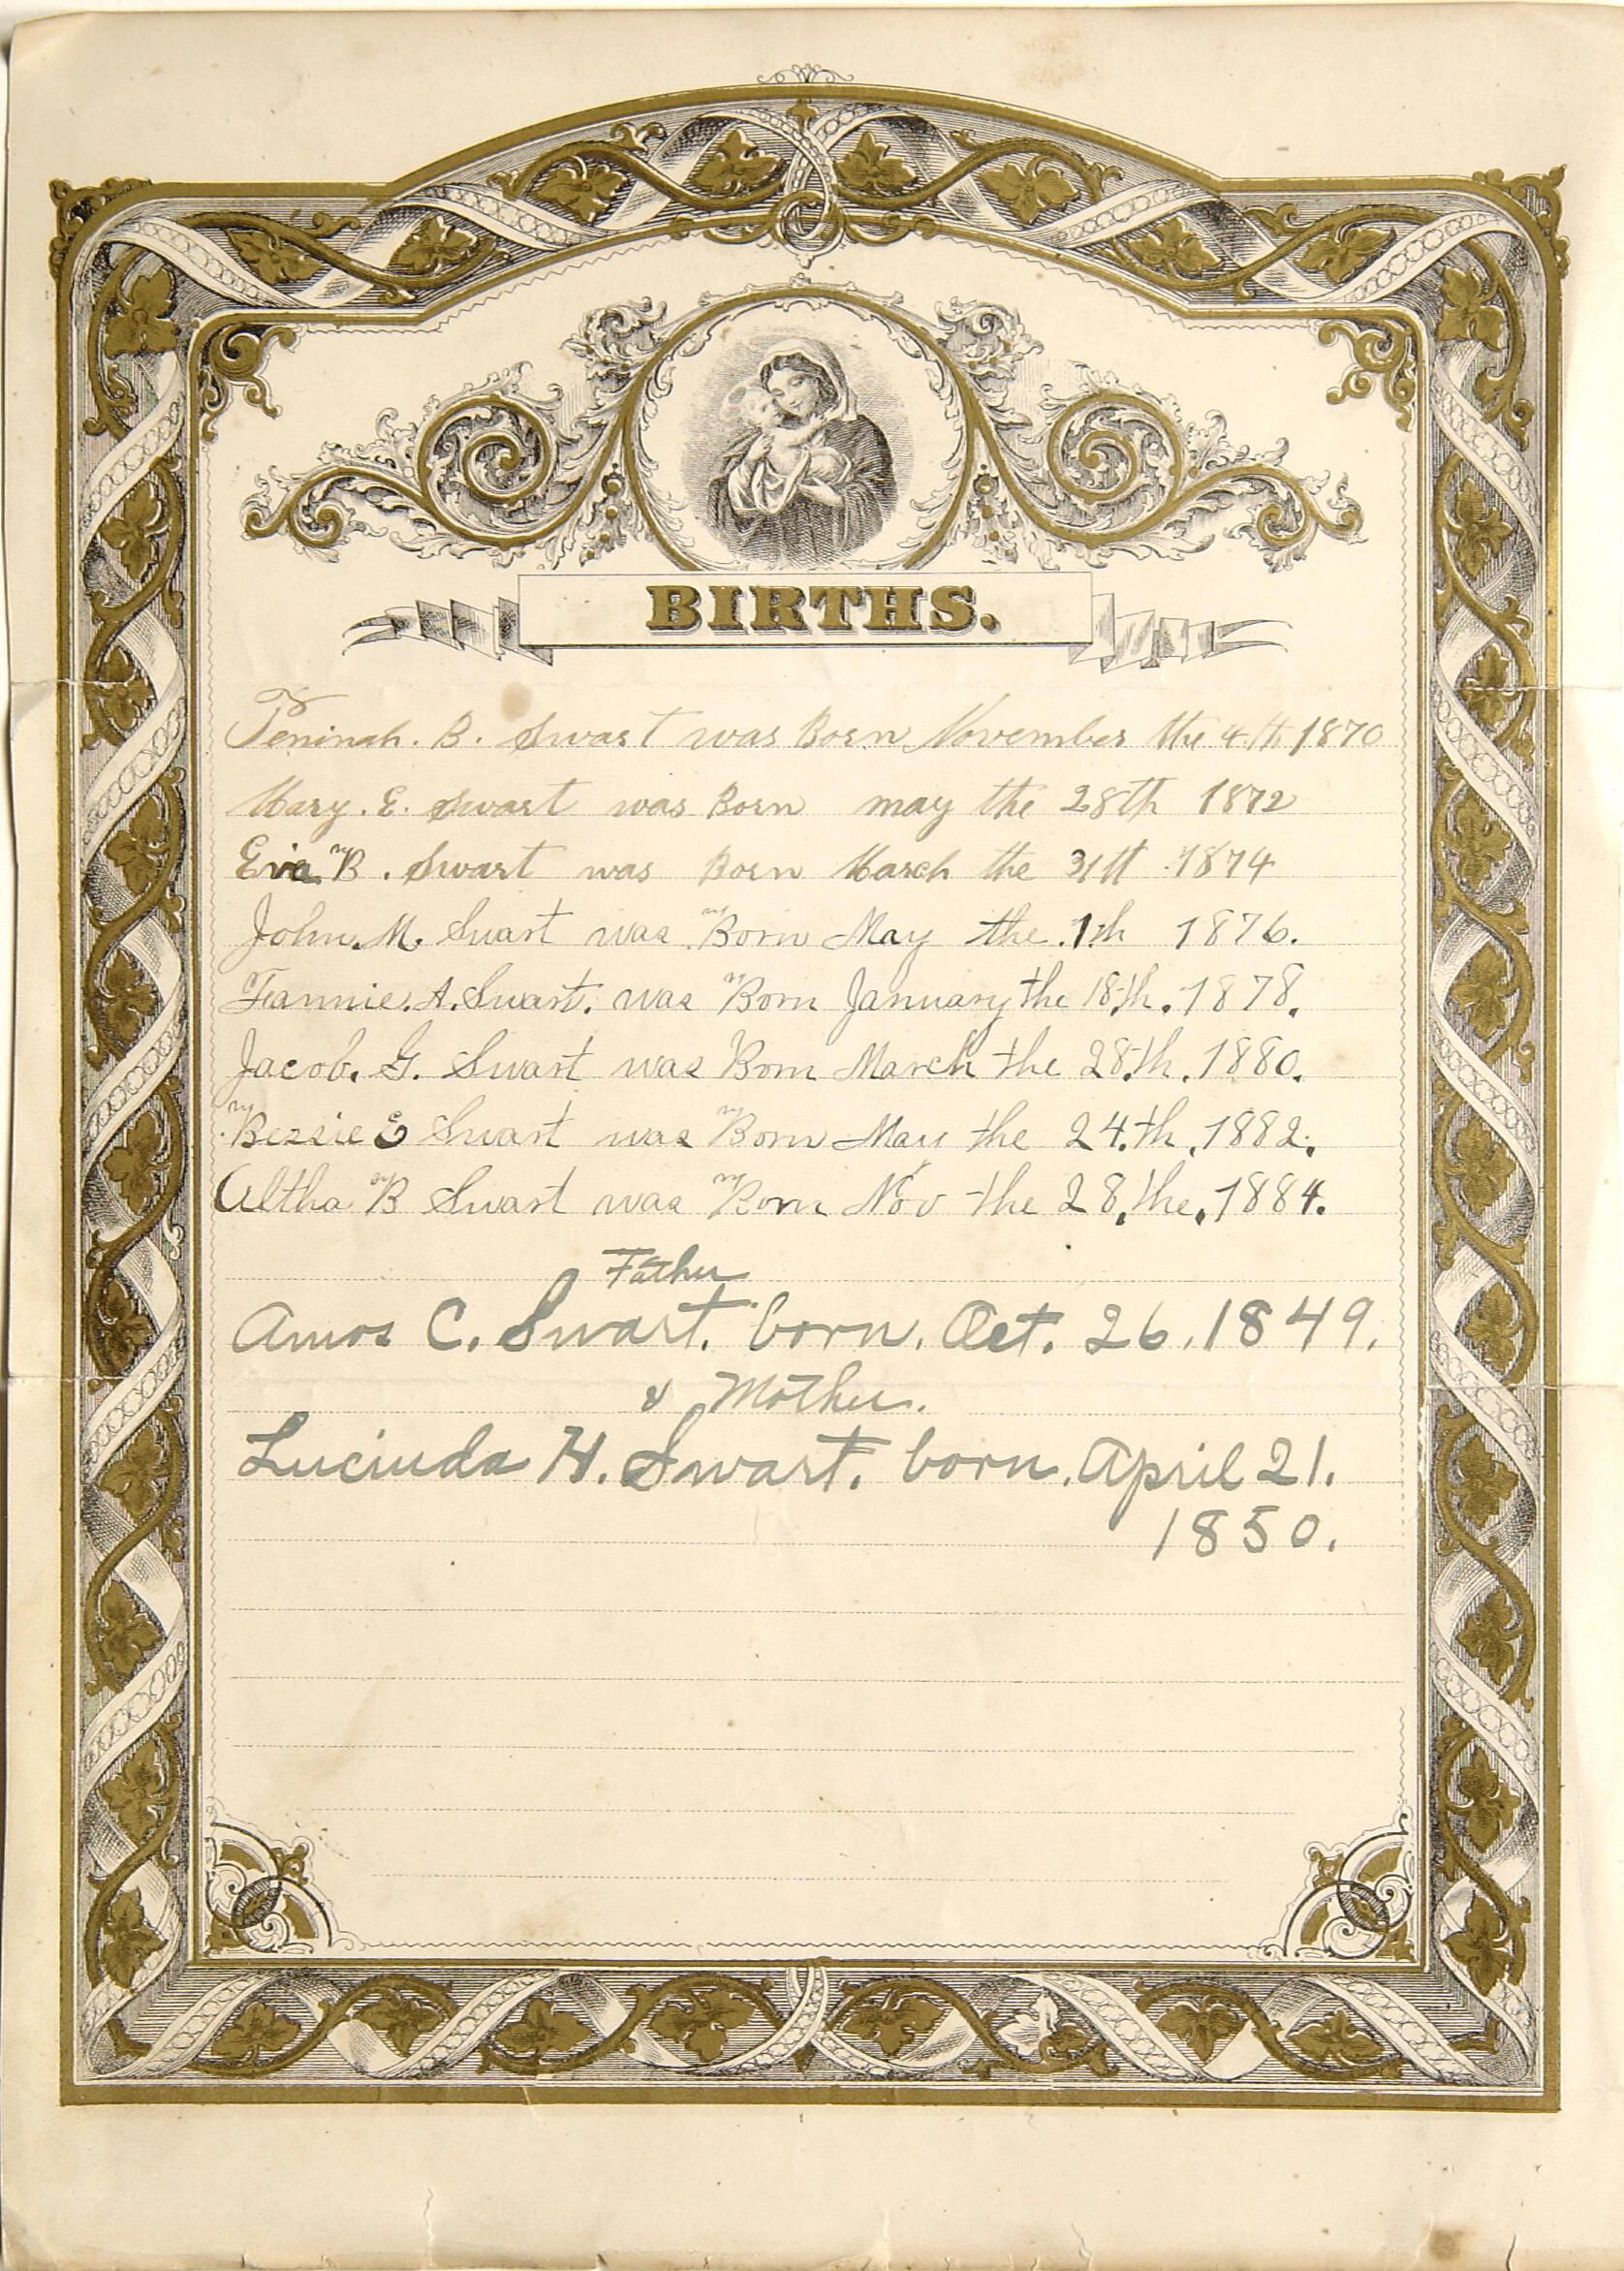 BIRTHS.
Peninah. B. Swart was Born November the 4th 1870
Mary. E. Swart was Born may the 28th 1872
Eva B. Swart was Born March the 31th 1874
John. M. Swart was Born May the 1th 1876.
Fannie. A. Swart. was Born January the 18th. 1878.
Jacob. G. Swart was Born March the 28.th. 1880.
Bessie E Swart was Born May the 24.th. 1882.
Altha B Swart was Born Nov the 28,the, 1884.
Father
Amos C. Swart. born. Oct. 26. 1849.
& Mother.
Lucinda H. Swart. born. April 21.
1850.